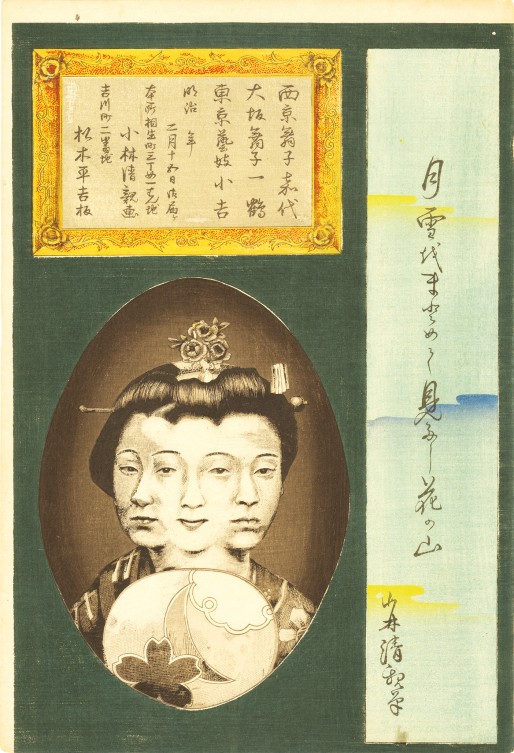 月雪をまとめて見たし花の山
小林清親筆
西京舞子嘉代
大坂舞子一鶴
東京藝妓小吉
明治 年
二月十五日御届
本所相生町三丁目一番地
小林清親画
吉川町二番地
松木平吉板